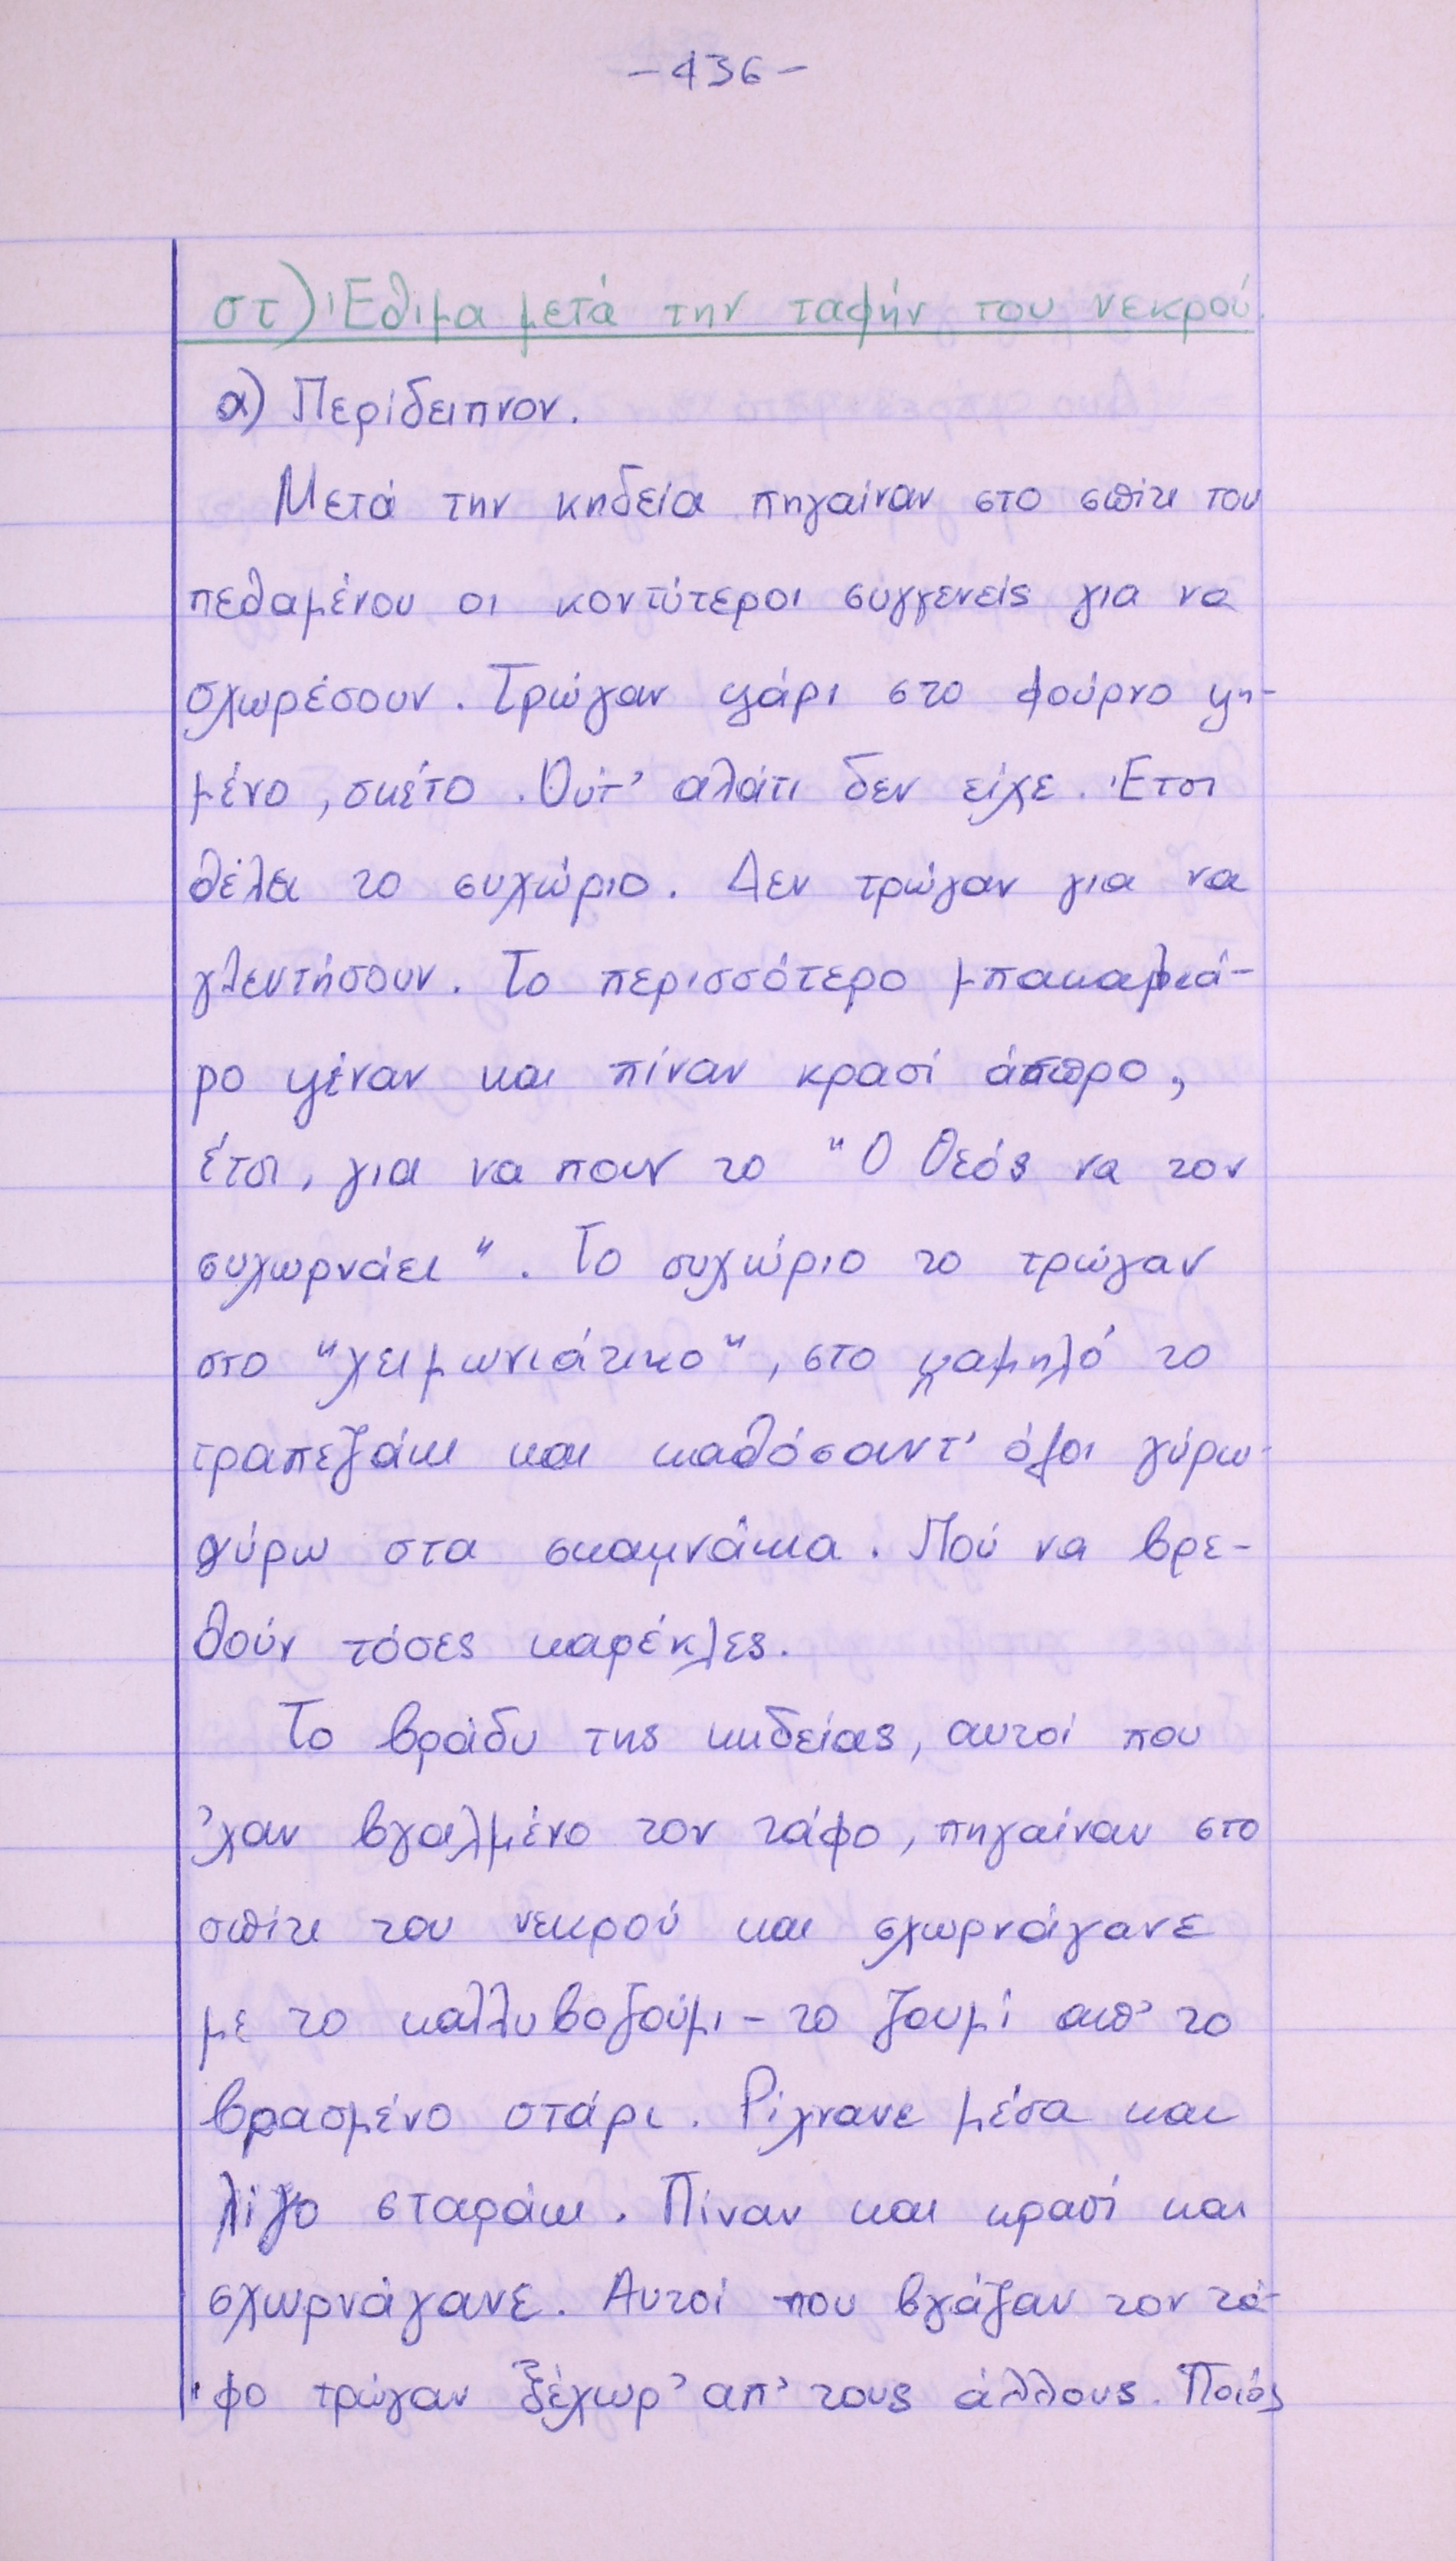 - 436 -
στ) Έθιμα μετά την ταφήν του νεκρού.
α) Περίδειπνον.
Μετά την κηδεία πηγαίναν στο σπίτι του
πεθαμένου οι κοντύτεροι συγγενείς για να
σχωρέσουν. Τρώγαν ψάρι στο φούρνο ψη-
μένο, σκέτο. Ούτ' αλάτι δεν είχε. Έτσι
θέλει το συχώριο. Δεν τρώγαν για να
γλεντήσουν. Το περισσότερο μπακαλιά-
ρο ψέναν και πίναν κρασί άσπρο,
έτσι, για να πουν το "Ο Θεός να τον
συχωρνάει". Το συχώριο το τρώγαν
στο "χειμωνιάτικο", στο χαμηλό το
τραπεζάκι και καθόσαντ' όλοι γύρω-
γύρω στα σκαμνάκια. Πού να βρε-
θούν τόσες καρέκλες.
Το βράδυ της κηδείας, αυτοί που
'χαν βγαλμένο τον τάφο, πηγαίναν στο
σπίτι του νεκρού και σχωρνάγανε
με το κολλυβοζούμι - το ζουμί απ' το
βρασμένο στάρι. Ρίχνανε μέσα και
λίγο σταράκι. Πίναν και κρασί και
σχωρνάγανε. Αυτοί που βγάζαν τον τά-
φο τρώγαν ξέχωρ' απ' τους άλλους. Ποιός